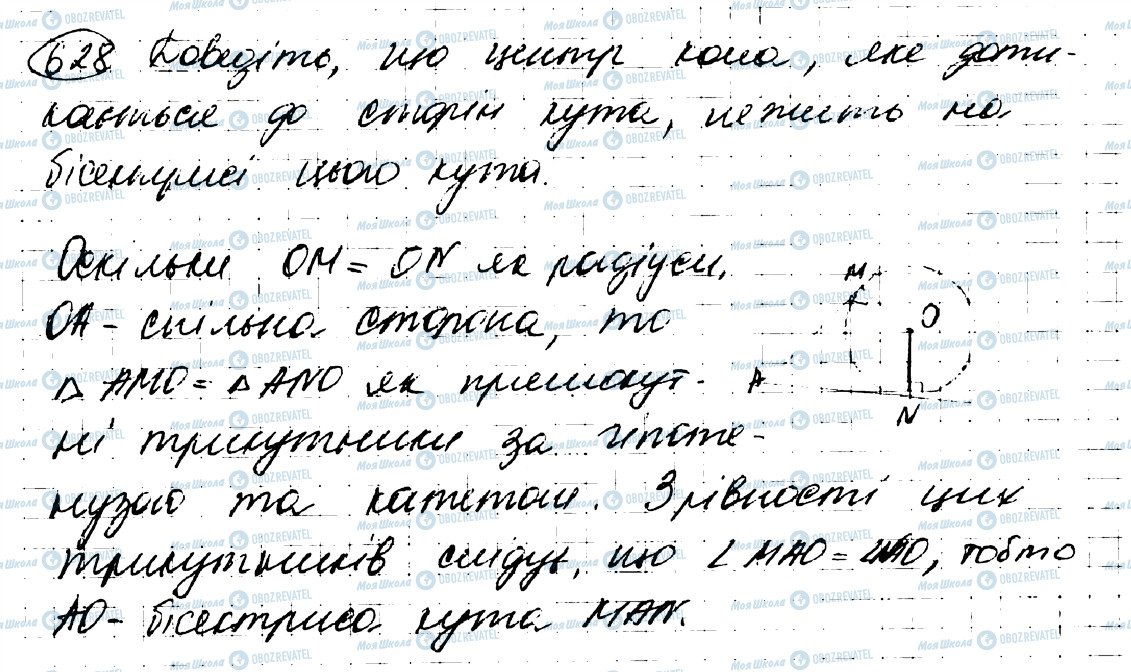 628 Доведіть, що центр кола, яке доти-
кається до сторін кута, лежить на
бісектрисі цього кута.
Оскільки OM = ON як радіуси,
OA - спільна сторона, то
△ AMO = △ ANO як прямокут-
ні трикутники за гіпоте-
нузою та катетом. З рівності цих
трикутників слідує, що ∠ MAO = ∠NAO, тобто
AO - бісектриса кута MAN.
M
O
A
N
МояШкола OBOZREVATEL